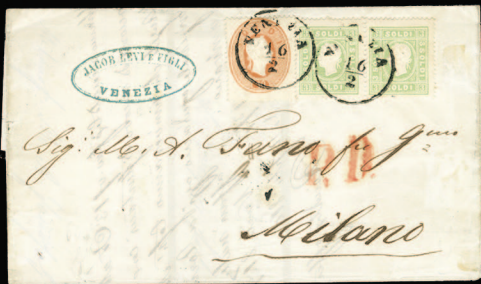 JACOB LEVI E FIGLI
VENEZIA
VENEZIA
16
2
VENEZIA
16
2
SOLDI
SOLDI
Sig. M. A. Fano fu
P. D.
Milano